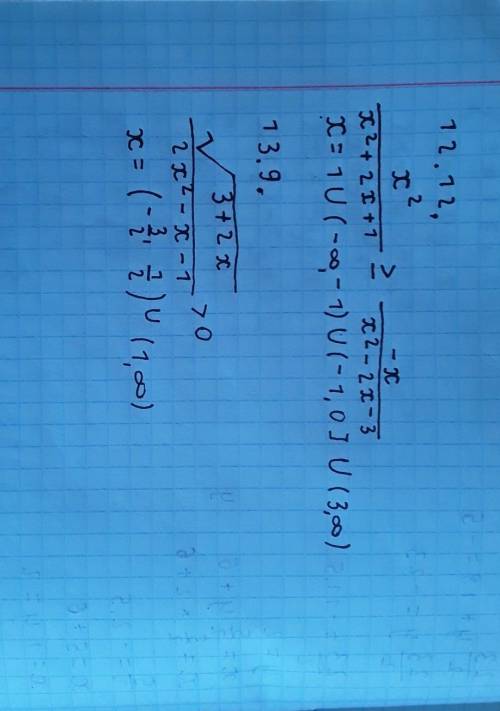 12.12,
x²/(x²+2x+1) ≥ -x/(x²-2x-3)
x = 1 ∪ (-∞, -1) ∪ (-1, 0] ∪ (3, ∞)
13.9,
√(3+2x)/(2x²-x-1) > 0
x = (-3/2, 1/2) ∪ (1, ∞)